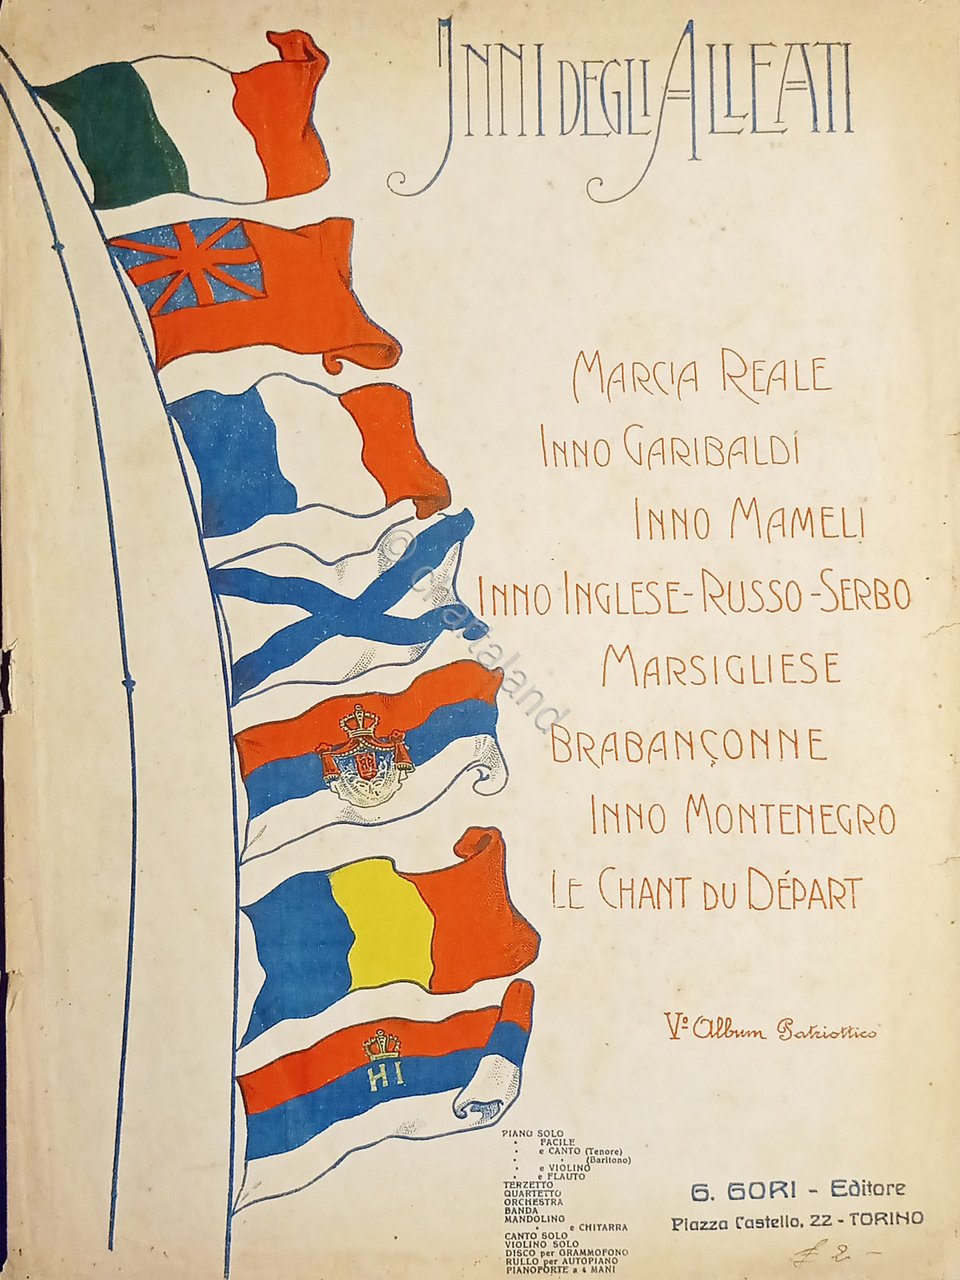 INNI DEGLI ALLEATI
MARCIA REALE
INNO GARIBALDI
INNO MAMELI
INNO INGLESE-RUSSO-SERBO
MARSIGLIESE
BRABANÇONNE
INNO MONTENEGRO
LE CHANT DU DÉPART
Vº Album Patriottico
HI
PIANO SOLO
" FACILE
" e CANTO (Tenore)
" " (Baritono)
" e VIOLINO
" e FLAUTO
TERZETTO
QUARTETTO
ORCHESTRA
BANDA
MANDOLINO
" e CHITARRA
CANTO SOLO
VIOLINO SOLO
DISCO per GRAMMOFONO
RULLO per AUTOPIANO
PIANOFORTE a 4 MANI
G. GORI - Editore
Piazza Castello, 22 - TORINO
£ 2 -
© chartaland